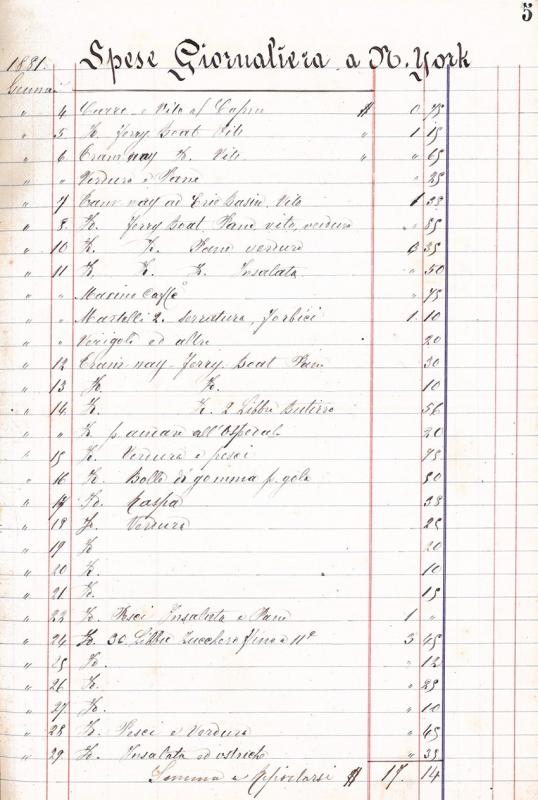 5
1881. Spese Giornaliera a N. York
Gennai
" 4 Carne e Vito al Capne $ 0 75
" 5 Id. Ferry Boat Vito " 1 15
" 6 Tramway Id. Vito " " 65
" " Verdura e Pane " 25
" 7 Tramway ad Erie Basin, Vito 1 38
" 8 Id. Ferry Boat Pane vito, verdura " 85
" 10 Id. Id. Pane verdura 35
" 11 Id. Id. Id. Insalata " 50
" " Macino Caffè " 75
" " Martelli 2. Serratura, Forbici 1 10
" " ed altro 20
" 12 Tramway Ferry Boat Pane 30
" 13 Id. Id. 10
" 14 Id. Id. 2 Libbre Butirro 56
" " Id. p. andare all'Ospedale 20
" 15 Id. Verdura e pesci 75
" 16 Id. Bolle di gomma p. gola 50
" 17 Id. Raspa 38
" 18 Id. Verdura 25
" 19 Id. 20
" 20 Id. 10
" 21 Id. 15
" 22 Id. Pesci Insalata e Pane 1 "
" 24 Id. 30 Libbre Zucchero fino a 11c 3 45
" 25 Id. " 12
" 26 Id. " 25
" 27 Id. " 10
" 28 Id. Pesci e Verdura " 45
" 29 Id. Insalata ed ostriche " 35
Somma a Riportarsi $ 17 14